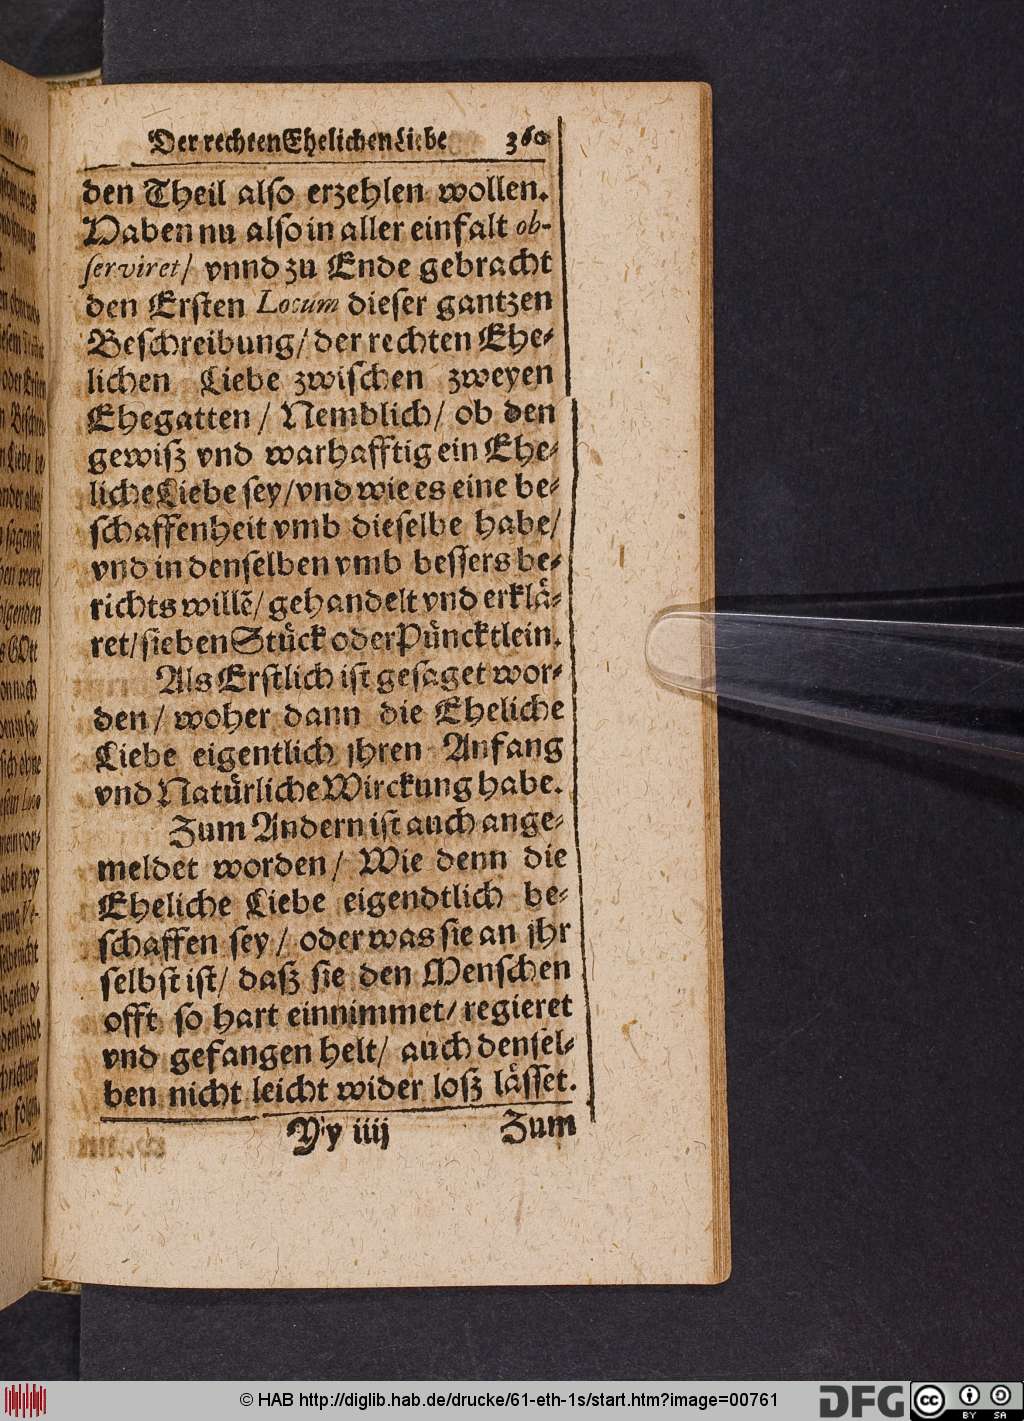 Der rechten Ehelichen Liebe 360
den Theil also erzehlen wollen.
Haben nu also in aller einfalt ob-
serviret/ vnnd zu Ende gebracht
den Ersten Locum dieser gantzen
Beschreibung/ der rechten Ehe-
lichen Liebe zwischen zweyen
Ehegatten / Nemblich/ ob den
gewisz vnd warhafftig ein Ehe-
liche Liebe sey/ vnd wie es eine be-
schaffenheit vmb dieselbe habe/
vnd in denselben vmb bessers be-
richts willē/ gehandelt vnd erklä-
ret/ sieben Stück oder Püncktlein.
Als Erstlich ist gesaget wor-
den / woher dann die Eheliche
Liebe eigentlich jhren Anfang
vnd Natürliche Wirckung habe.
Zum Andern ist auch ange-
meldet worden/ Wie denn die
Eheliche Liebe eigendtlich be-
schaffen sey / oder was sie an jhr
selbst ist/ dasz sie den Menschen
offt so hart einnimmet/ regieret
vnd gefangen helt/ auch densel-
ben nicht leicht wider losz lässet.
Yy iiij Zum
© HAB http://diglib.hab.de/drucke/61-eth-1s/start.htm?image=00761
DFG
cc BY SA